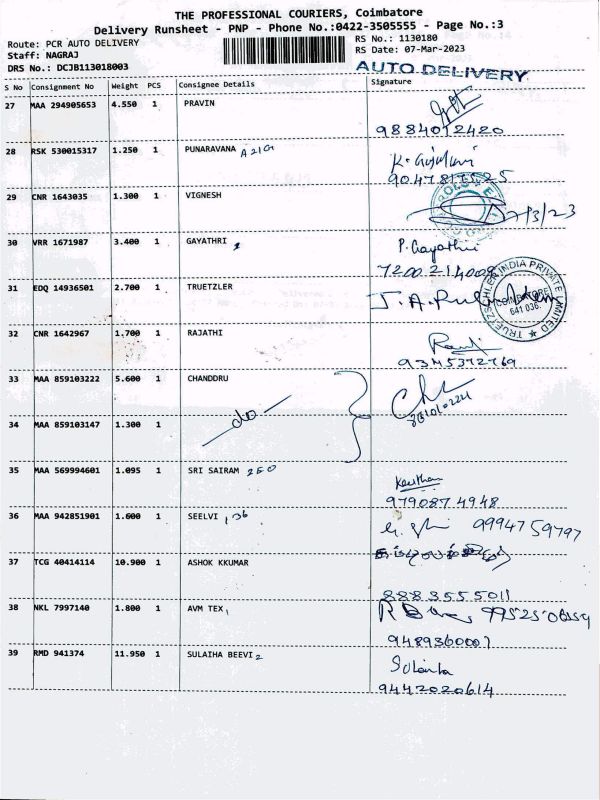 THE PROFESSIONAL COURIERS, Coimbatore
Delivery Runsheet - PNP - Phone No.:0422-3505555 - Page No.:3
Route: PCR AUTO DELIVERY RS No.: 1130180
Staff: NAGRAJ RS Date: 07-Mar-2023
DRS No.: DCJB113018003 AUTO DELIVERY
S No Consignment No Weight PCS Consignee Details Signature
27 MAA 294905653 4.550 1 PRAVIN
9884012420
28 RSK 530015317 1.250 1 PUNARAVANA A21G
29 CNR 1643035 1.300 1 VIGNESH
7/3/23
30 VRR 1671987 3.400 1 GAYATHRI P. Gayathri
31 EDQ 14936501 2.700 1 TRUETZLER
TRUETZSCHLER INDIA PRIVATE LIMITED
COIMBATORE
641 036.
32 CNR 1642967 1.700 1 RAJATHI
9345372769
33 MAA 859103222 5.600 1 CHANDDRU
34 MAA 859103147 1.300 1 do
35 MAA 569994601 1.095 1 SRI SAIRAM 250
9790874948
36 MAA 942851901 1.600 1 SEELVI 136 9994759797
37 TCG 40414114 10.900 1 ASHOK KKUMAR
8883555011
38 NKL 7997140 1.800 1 AVM TEX
9489360007
39 RMD 941374 11.950 1 SULAIHA BEEVI 2
9447020614